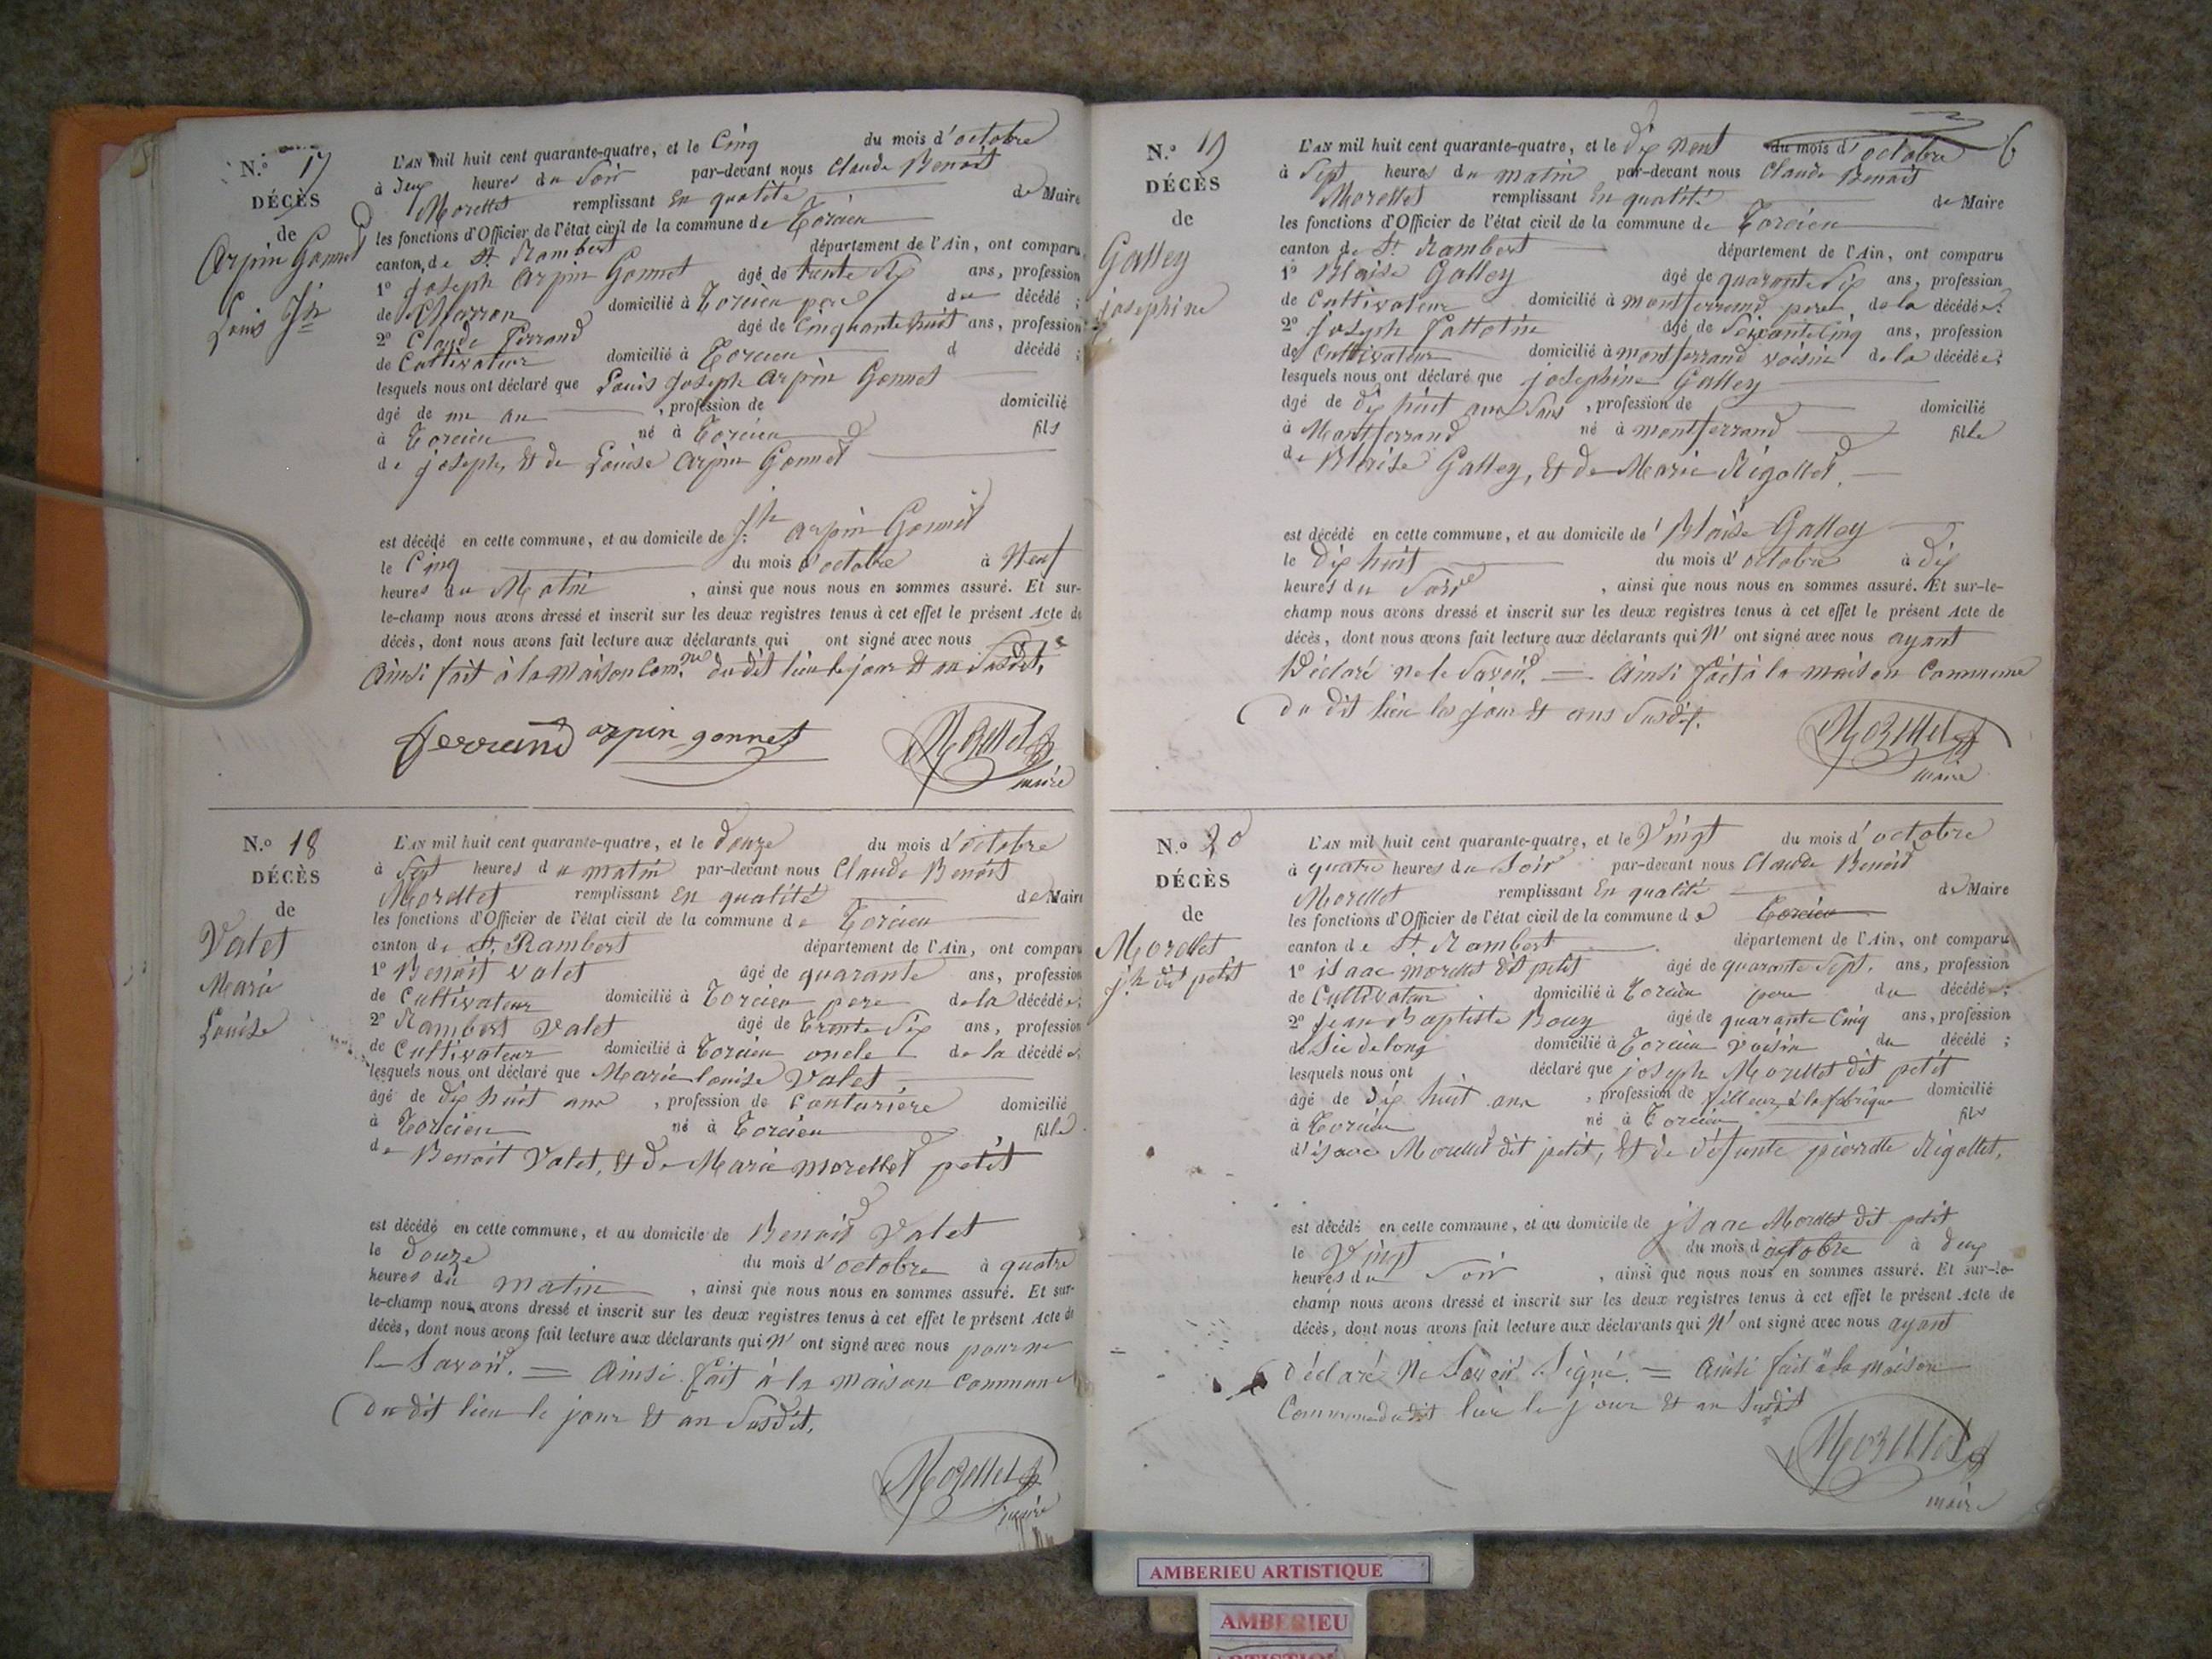 N.o 17
DÉCÈS
de
Arpin Gonnet
Louis Jh
L'AN mil huit cent quarante-quatre, et le Cinq du mois d'octobre
à deux heures du Soir par-devant nous Claude Benoit
Morellet remplissant En qualité de Maire
les fonctions d'Officier de l'état civil de la commune de Torcieu
canton de St Rambert département de l'Ain, ont comparu
1o Joseph Arpin Gonnet âgé de trente Six ans, profession
de Charron domicilié à Torcieu pere du décédé ;
2o Claude Ferrand âgé de Cinquante huit ans, profession
de Cultivateur domicilié à Torcieu d décédé ;
lesquels nous ont déclaré que Louis Joseph Arpin Gonnet
âgé de un an , profession de domicilié
à Torcieu né à Torcieu fils
de joseph, Et de Louise Arpin Gonnet
est décédé en cette commune, et au domicile de Jh arpin Gonnet
le Cinq du mois d'octobre à Neuf
heures du Matin , ainsi que nous nous en sommes assuré. Et sur-
le-champ nous avons dressé et inscrit sur les deux registres tenus à cet effet le présent Acte de
décès, dont nous avons fait lecture aux déclarants qui ont signé avec nous
Ainsi fait à la Maison Com.ne du dit lieu le jour Et an Susdit,
ferrand arpin gonnet Morellet
maire
N.o 18
DÉCÈS
de
Valet
Marie
Louise
L'AN mil huit cent quarante-quatre, et le douze du mois d'octobre
à Sept heures du matin par-devant nous Claude Benoit
Morellet remplissant En qualité de Maire
les fonctions d'Officier de l'état civil de la commune de Torcieu
canton de St. Rambert département de l'Ain, ont comparu
1o Benoit Valet âgé de quarante ans, profession
de Cultivateur domicilié à Torcieu pere de la décédée ;
2o Rambert Valet âgé de trente Six ans, profession
de Cultivateur domicilié à Torcieu oncle de la décédée ;
lesquels nous ont déclaré que Marie louise Valet
âgé de dix huit ans , profession de Couturière domicilié
à Torcieu né à Torcieu fille
de Benoit Valet, Et de Marie morellet petit
est décédé en cette commune, et au domicile de Benoit Valet
le douze du mois d'octobre à quatre
heures du matin , ainsi que nous nous en sommes assuré. Et sur-
le-champ nous avons dressé et inscrit sur les deux registres tenus à cet effet le présent Acte de
décès, dont nous avons fait lecture aux déclarants qui N' ont signé avec nous pour ne
le Savoir. = Ainsi fait à la Maison Commune
du dit lieu le jour Et an Susdit.
Morellet
maire
6
N.o 19
DÉCÈS
de
Galley
josephine
L'AN mil huit cent quarante-quatre, et le dix Neuf du mois d'octobre
à Sept heures du matin par-devant nous Claude Benoit
Morellet remplissant En qualité de Maire
les fonctions d'Officier de l'état civil de la commune de Torcieu
canton de St Rambert département de l'Ain, ont comparu
1o Blaise Galley âgé de quarante Six ans, profession
de Cultivateur domicilié à montferrand pere de la décédée ;
2o Joseph âgé de Soixante Cinq ans, profession
de Cultivateur domicilié à montferrand voisin de la décédée ;
lesquels nous ont déclaré que josephine Galley
âgé de dix huit ans Sans , profession de domicilié
à Montferrand né à montferrand fille
de Blaise Galley, Et de Marie Rigollet.
est décédé en cette commune, et au domicile de Blaise Galley
le dix huit du mois d'octobre à dix
heures du Soir , ainsi que nous nous en sommes assuré. Et sur-le-
champ nous avons dressé et inscrit sur les deux registres tenus à cet effet le présent Acte de
décès, dont nous avons fait lecture aux déclarants qui N' ont signé avec nous ayant
Déclaré ne le Savoir. = Ainsi fait à la maison Commune
du dit lieu les jour Et ans Susdit.
Morellet
maire
N.o 20
DÉCÈS
de
Morellet
jh dit petit
L'AN mil huit cent quarante-quatre, et le Vingt du mois d'octobre
à quatre heures du Soir par-devant nous Claude Benoit
Morellet remplissant En qualité de Maire
les fonctions d'Officier de l'état civil de la commune de Torcieu
canton de St Rambert département de l'Ain, ont comparu
1o isaac morellet dit petit âgé de quarante Sept. ans, profession
de Cultivateur domicilié à Torcieu pere du décédé ;
2o jean Baptiste Bouy âgé de quarante Cinq ans, profession
de Sie de long domicilié à Torcieu voisin du décédé ;
lesquels nous ont déclaré que joseph Morellet dit petit
âgé de dix huit ans , profession de fileur à la fabrique domicilié
à Torcieu né à Torcieu fils
d'isaac Morellet dit petit, Et de défunte pierrette Rigollet,
est décédé en cette commune, et au domicile de isaac Morellet dit petit
le Vingt du mois d'octobre à deux
heures du Soir , ainsi que nous nous en sommes assuré. Et sur-le-
champ nous avons dressé et inscrit sur les deux registres tenus à cet effet le présent Acte de
décès, dont nous avons fait lecture aux déclarants qui N' ont signé avec nous ayant
déclaré Ne Savoir Signé. = Ainsi fait à la Maison
Commune du dit lieu le jour Et an Susdit
Morellet
maire
AMBERIEU ARTISTIQUE
AMBERIEU
ARTISTIQUE